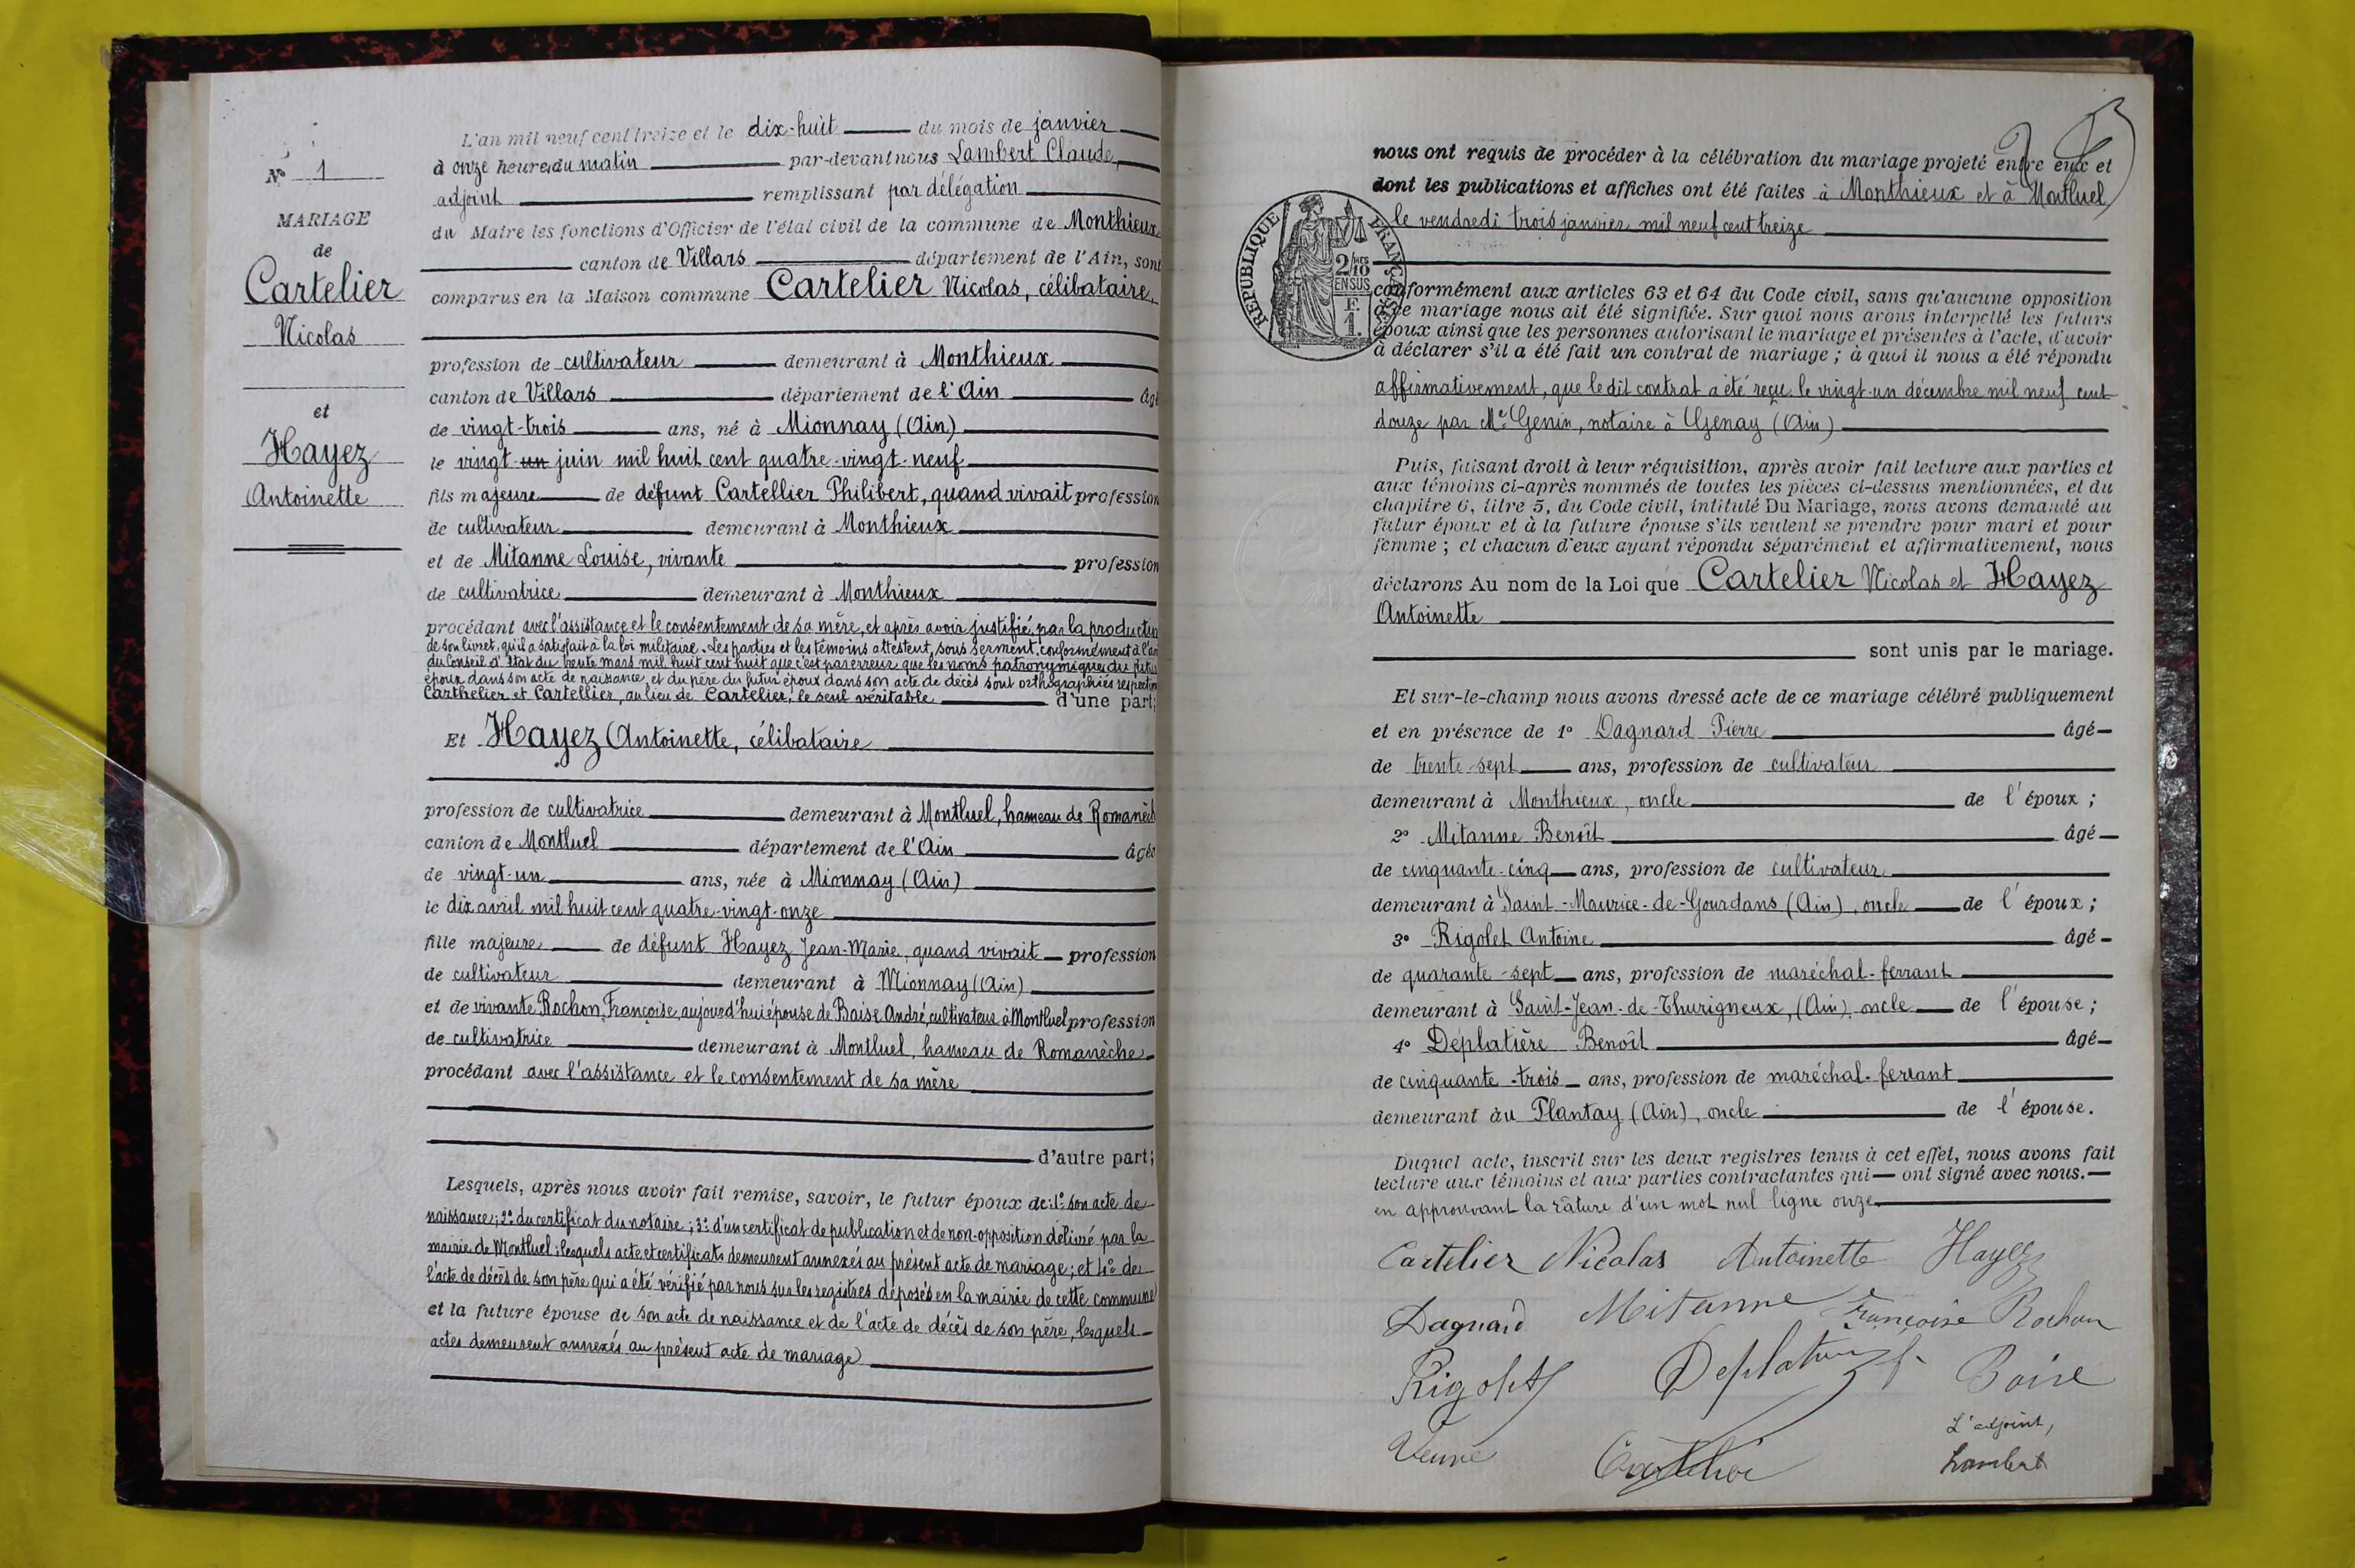 N° 1
MARIAGE
de
Cartelier
Nicolas
et
Hayez
Antoinette
L'an mil neuf cent treize et le dix-huit du mois de janvier
à onze heures du matin par-devant nous Lambert Claude,
adjoint remplissant par délégation
du Maire les fonctions d'Officier de l'état civil de la commune de Monthieux
canton de Villars département de l'Ain, sont
comparus en la Maison commune Cartelier Nicolas, célibataire,
profession de cultivateur demeurant à Monthieux
canton de Villars département de l'Ain âgé
de vingt-trois ans, né à Mionnay (Ain)
le vingt un juin mil huit cent quatre-vingt-neuf
fils majeur de défunt Cartellier Philibert, quand vivait profession
de cultivateur demeurant à Monthieux
et de Mitanne Louise, vivante profession
de cultivatrice demeurant à Monthieux
procédant avec l'assistance et le consentement de sa mère, et après avoir justifié, par la production
de son livret, qu'il a satisfait à la loi militaire. Les parties et les témoins attestent, sous serment, conformément à l'avis
du Conseil d'Etat du trente mars mil huit cent huit que c'est par erreur que les noms patronymiques du futur
époux dans son acte de naissance, et du père du futur époux dans son acte de décès sont orthographiés
Carthelier et Cartellier, au lieu de Cartelier, le seul véritable d'une part;
Et Hayez Antoinette, célibataire
profession de cultivatrice demeurant à Montluel, hameau de Romanèche
canton de Montluel département de l'Ain âgée
de vingt-un ans, née à Mionnay (Ain)
le dix avril mil huit cent quatre-vingt-onze
fille majeure de défunt Hayez Jean-Marie, quand vivait profession
de cultivateur demeurant à Mionnay (Ain)
et de vivante Rochon Françoise, aujourd'hui épouse de Baise André, cultivateur à Montluel profession
de cultivatrice demeurant à Montluel, hameau de Romanèche
procédant avec l'assistance et le consentement de sa mère
d'autre part;
Lesquels, après nous avoir fait remise, savoir, le futur époux de: 1° son acte de
naissance; 2° du certificat du notaire; 3° d'un certificat de publication et de non-opposition délivré par la
mairie de Montluel: lesquels acte et certificats demeurent annexés au présent acte de mariage; et 4° de
l'acte de décès de son père qui a été vérifié par nous sur les registres déposés en la mairie de cette commune
et la future épouse de son acte de naissance et de l'acte de décès de son père, lesquels
actes demeurent annexés au présent acte de mariage
nous ont requis de procéder à la célébration du mariage projeté entre eux et
dont les publications et affiches ont été faites à Monthieux et à Montluel
le vendredi trois janvier mil neuf cent treize
RÉPUBLIQUE FRANÇAISE
2/10
EN SUS
F
1
conformément aux articles 63 et 64 du Code civil, sans qu'aucune opposition
à ce mariage nous ait été signifiée. Sur quoi nous avons interpellé les futurs
époux ainsi que les personnes autorisant le mariage et présentes à l'acte, d'avoir
à déclarer s'il a été fait un contrat de mariage; à quoi il nous a été répondu
affirmativement, que le dit contrat a été reçu le vingt-un décembre mil neuf cent
douze par Me Genin, notaire à Genay (Ain)
Puis, faisant droit à leur réquisition, après avoir fait lecture aux parties et
aux témoins ci-après nommés de toutes les pièces ci-dessus mentionnées, et du
chapitre 6, titre 5, du Code civil, intitulé Du Mariage, nous avons demandé au
futur époux et à la future épouse s'ils veulent se prendre pour mari et pour
femme; et chacun d'eux ayant répondu séparément et affirmativement, nous
déclarons Au nom de la Loi que Cartelier Nicolas et Hayez
Antoinette
sont unis par le mariage.
Et sur-le-champ nous avons dressé acte de ce mariage célébré publiquement
et en présence de 1° Dagnard Pierre âgé
de trente-sept ans, profession de cultivateur
demeurant à Monthieux, oncle de l'époux;
2° Mitanne Benoît âgé
de cinquante-cinq ans, profession de cultivateur
demeurant à Saint-Maurice-de-Gourdans (Ain), oncle de l'époux;
3° Rigolet Antoine âgé
de quarante-sept ans, profession de maréchal-ferrant
demeurant à Saint-Jean-de-Thurigneux, (Ain), oncle de l'épouse;
4° Déplatière Benoît âgé
de cinquante-trois ans, profession de maréchal-ferrant
demeurant au Plantay (Ain), oncle de l'épouse.
Duquel acte, inscrit sur les deux registres tenus à cet effet, nous avons fait
lecture aux témoins et aux parties contractantes qui ont signé avec nous.
en approuvant la râture d'un mot nul ligne onze
Cartelier Nicolas Antoinette Hayez
Dagnard Mitanne Françoise Rochon
Rigolet Baise
L'adjoint,
Veuve Cartelier Lambert